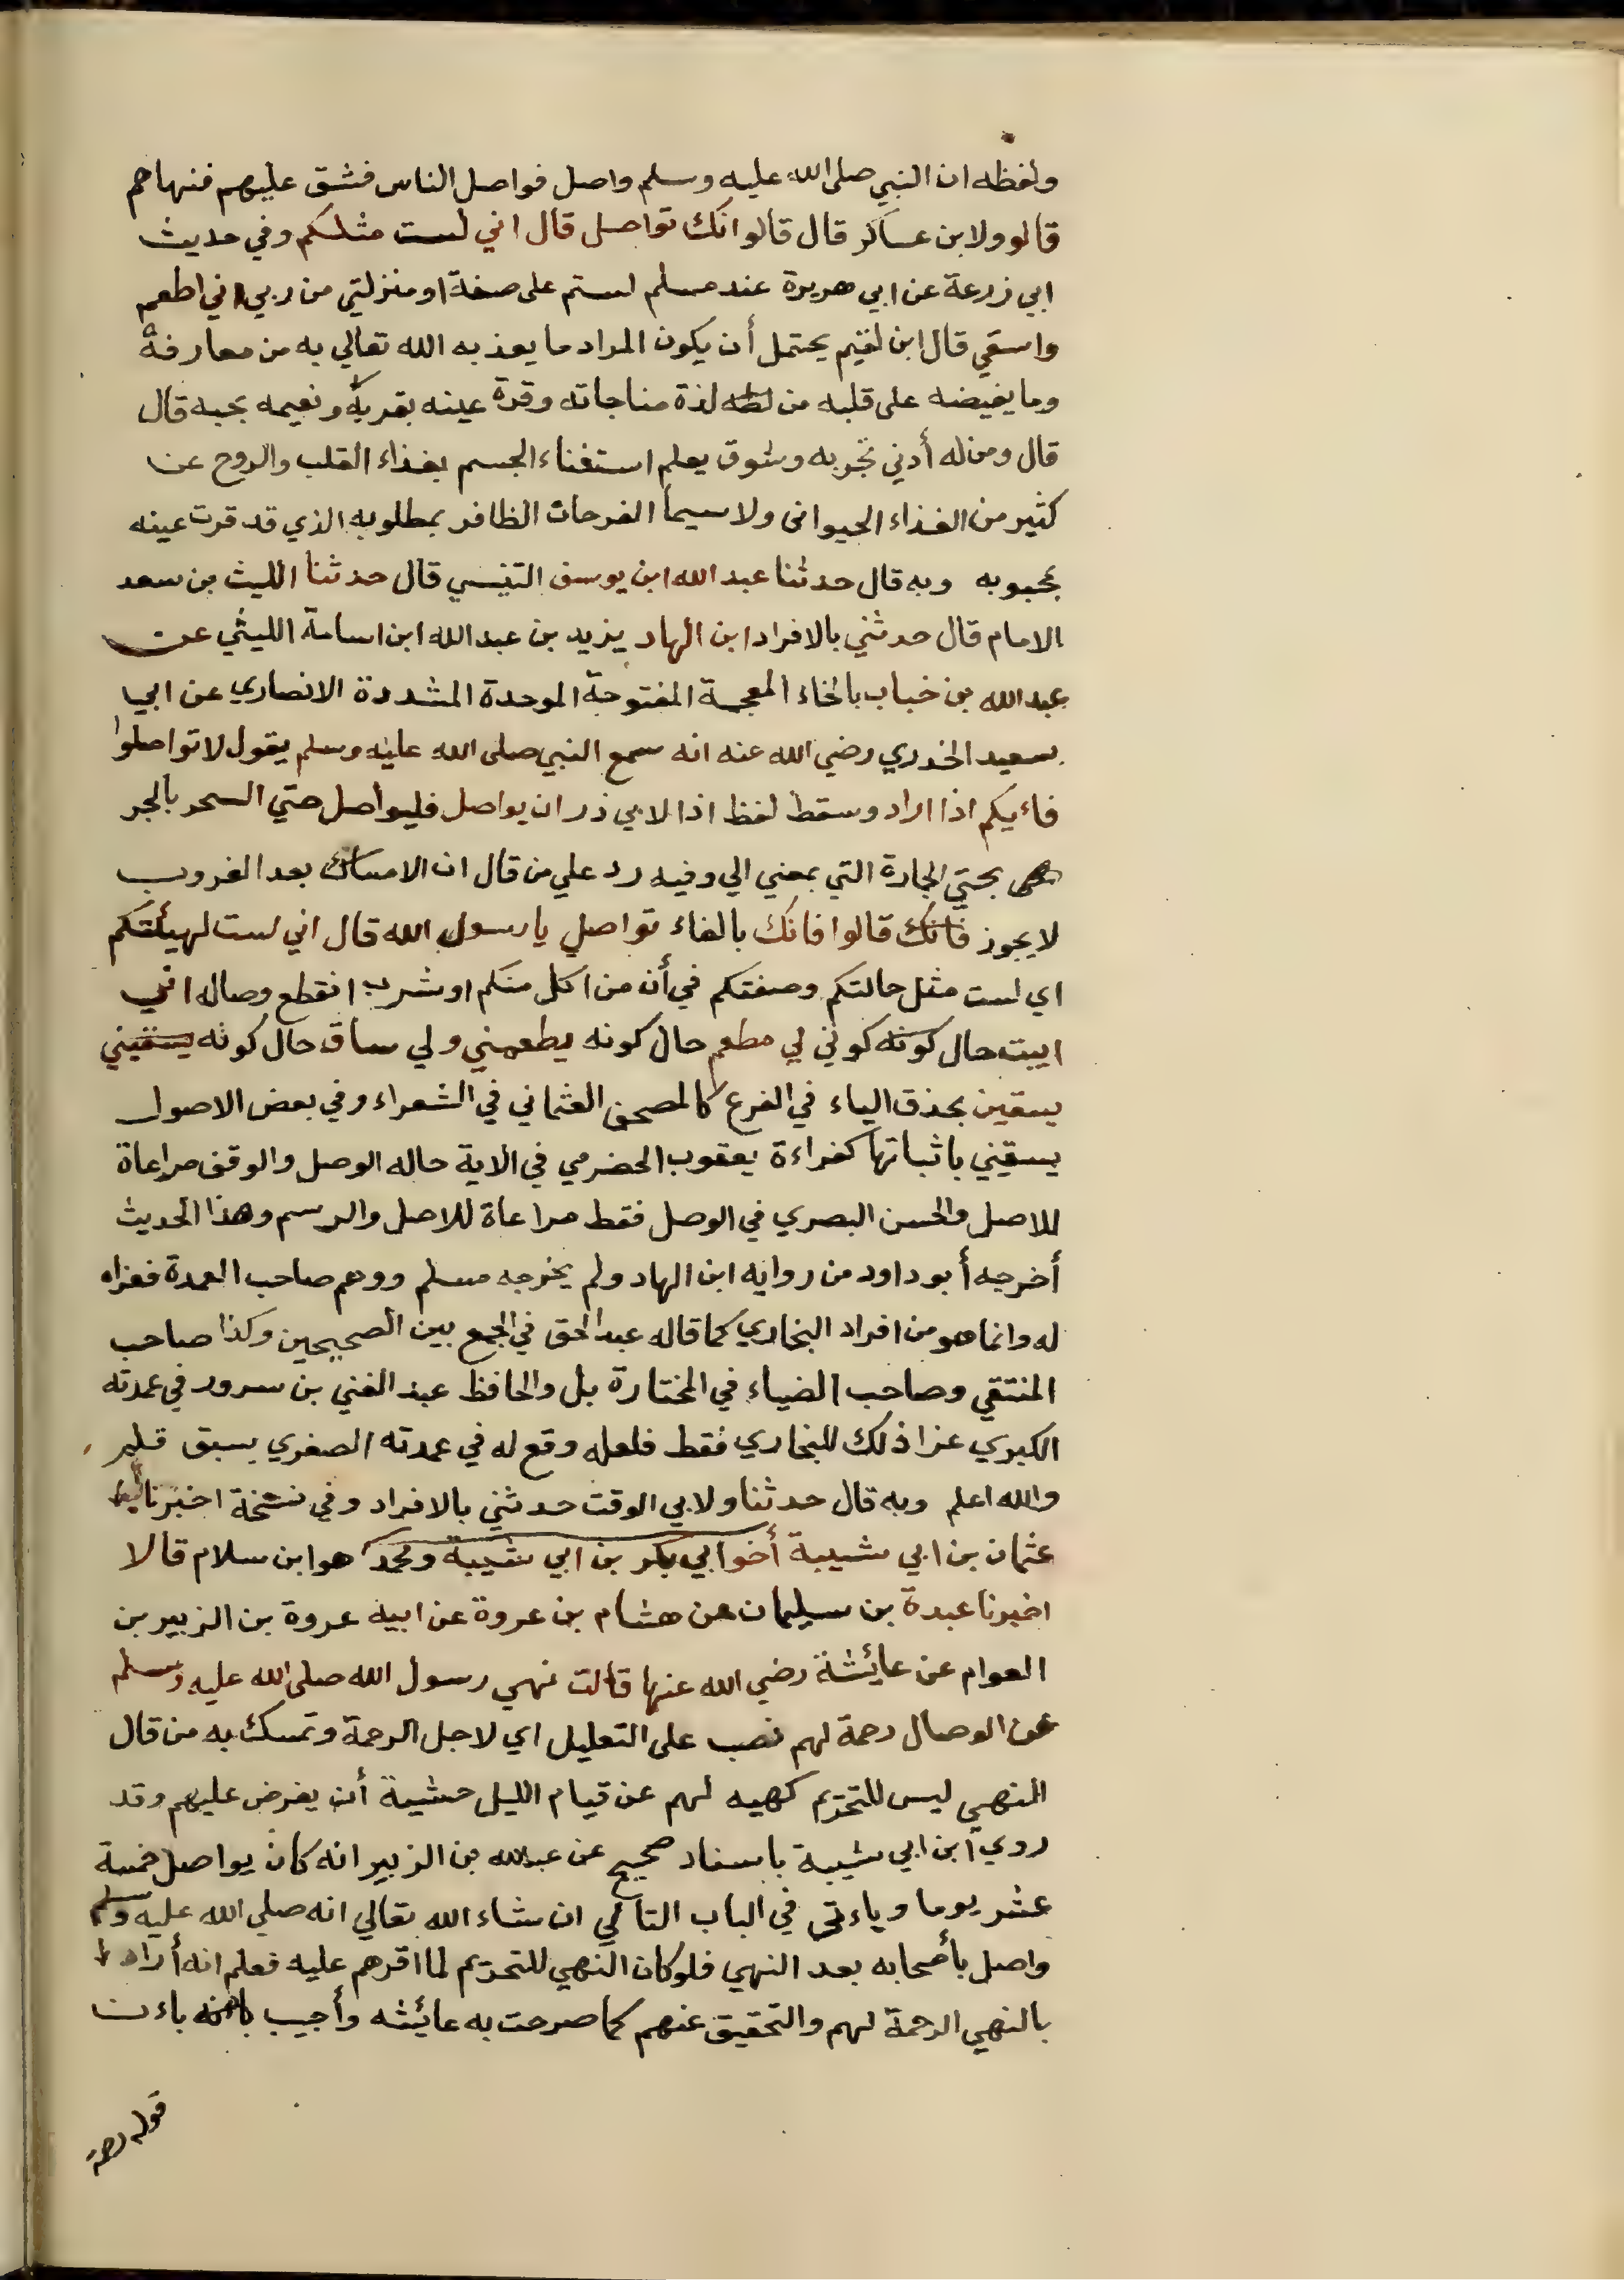 ولفظه ان النبي صلى الله عليه وسلم واصل فواصل الناس فشق عليهم فنهاهم
قالوا ولابن عساكر قال قالوا انك تواصل قال اني لست مثلكم وفي حديث
ابي زرعة عن ابي هريرة عند مسلم لستم على صفة او منزلتي من ربي اني اطعم
واسقي قال ابن لقيم يحتمل أن يكون المراد ما يعذبه الله تعالي به من معارفة
وما يفيضه على قلبه من لذة مناجاته وقرة عينه بقربه ونعيمه بحبه قال
قال ومن له أدني تجربه وشوق يعلم استغناء الجسم بغذاء القلب والروح عن
كثير من الغذاء الحيوانى ولا سيما الفرحان الظافر بمطلوبه الذي قد قرت عينه
بمحبوبه وبه قال حدثنا عبد الله ابن يوسف التنيسي قال حدثنا الليث بن سعد
الامام قال حدثني بالافراد ابن الهاد يزيد بن عبد الله ابن اسامة الليثي عن
عبد الله بن خباب بالخاء المعجمة المفتوحة الموحدة المشددة الانصاري عن ابي
سعيد الخدري رضي الله عنه انه سمع النبي صلى الله عليه وسلم يقول لا تواصلوا
فاءيكم اذا اراد وسقط لفظ اذا لابي ذر ان يواصل فليواصل حتي السحر بالجر
بحتي الجارة التي بمعني الي وفيه رد علي من قال ان الامساك بعد الغروب
لا يجوز فانك قالوا فانك بالفاء تواصل يا رسول الله قال اني لست لهيئتكم
اي لست مثل حالتكم وصفتكم في أن من اكل منكم او شرب انقطع وصاله اني
ابيت حال كونه كوني لي مطعم حال كونه يطعمني ولي ساق حال كونه يسقيني
يسقين بحذف الياء في الفرع كالمصحف العثماني في الشعراء وفي بعض الاصول
يسقيني باثباتها كقراءة يعقوب الحضرمي في الاية حاله الوصل والوقف مراعاة
للاصل والحسن البصري في الوصل فقط مراعاة للاصل والرسم وهذا الحديث
أخرجه أبو داود من روايه ابن الهاد ولم يخرجه مسلم ووهم صاحب العمدة فعزاه
له وانما هو من افراد البخاري كما قاله عبد الحق في الجمع بين الصحيحين وكذا صاحب
المنتقي وصاحب الضياء في المختارة بل والحافظ عبد الغني بن سرور في عمدته
الكبري عزا ذلك للبخاري فقط فلعله وقع له في عمدته الصغري بسبق قلم
والله اعلم وبه قال حدثنا ولابي الوقت حدثني بالافراد وفي نسخة اخبرنا
عثمان بن ابي شيبة أخو ابي بكر بن ابي شيبة ومحمد هو ابن سلام قالا
اخبرنا عبدة بن سليمان عن هشام بن عروة عن ابيه عروة بن الزبير بن
العوام عن عائشة رضي الله عنها قالت نهي رسول الله صلى الله عليه وسلم
عن الوصال رحمة لهم نصب على التعليل اي لاجل الرحمة وتمسك به من قال
النهي ليس للتحريم كهيه لهم عن قيام الليل خشية أن يفرض عليهم وقد
روي ابن ابي شيبة باسناد صحيح عن عبد الله بن الزبير انه كان يواصل خمسة
عشر يوما وياءتى في الباب التالي ان شاء الله تعالي انه صلي الله عليه وسلم
واصل بأصحابه بعد النهي فلو كان النهي للتحريم لما اقرهم عليه فعلم انه أراد
بالنهي الرحمة لهم والتحقيق عنهم كما صرحت به عائشه وأجيب باءن
قوله رحمة